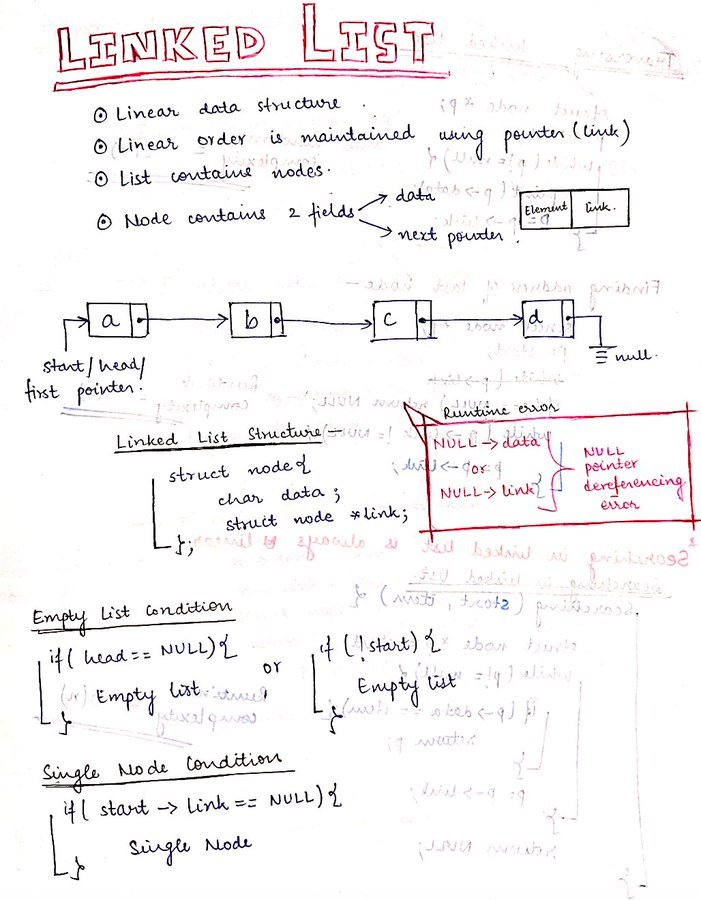 LINKED LIST
⊙ Linear data structure .
⊙ Linear order is maintained using pointer (link)
⊙ List contains nodes.
⊙ Node contains 2 fields → data
→ next pointer .
Element | link.
a → b → c → d
null.
start/head/
first pointer.
Runtime error
NULL → data
or
NULL → link
NULL
pointer
dereferencing
error
Linked List Structure -
struct node {
char data ;
struct node *link;
};
Empty List Condition
if ( head == NULL) {
Empty list
}
or
if ( ! start) {
Empty list
}
Single Node Condition
if ( start → link == NULL) {
Single Node
}